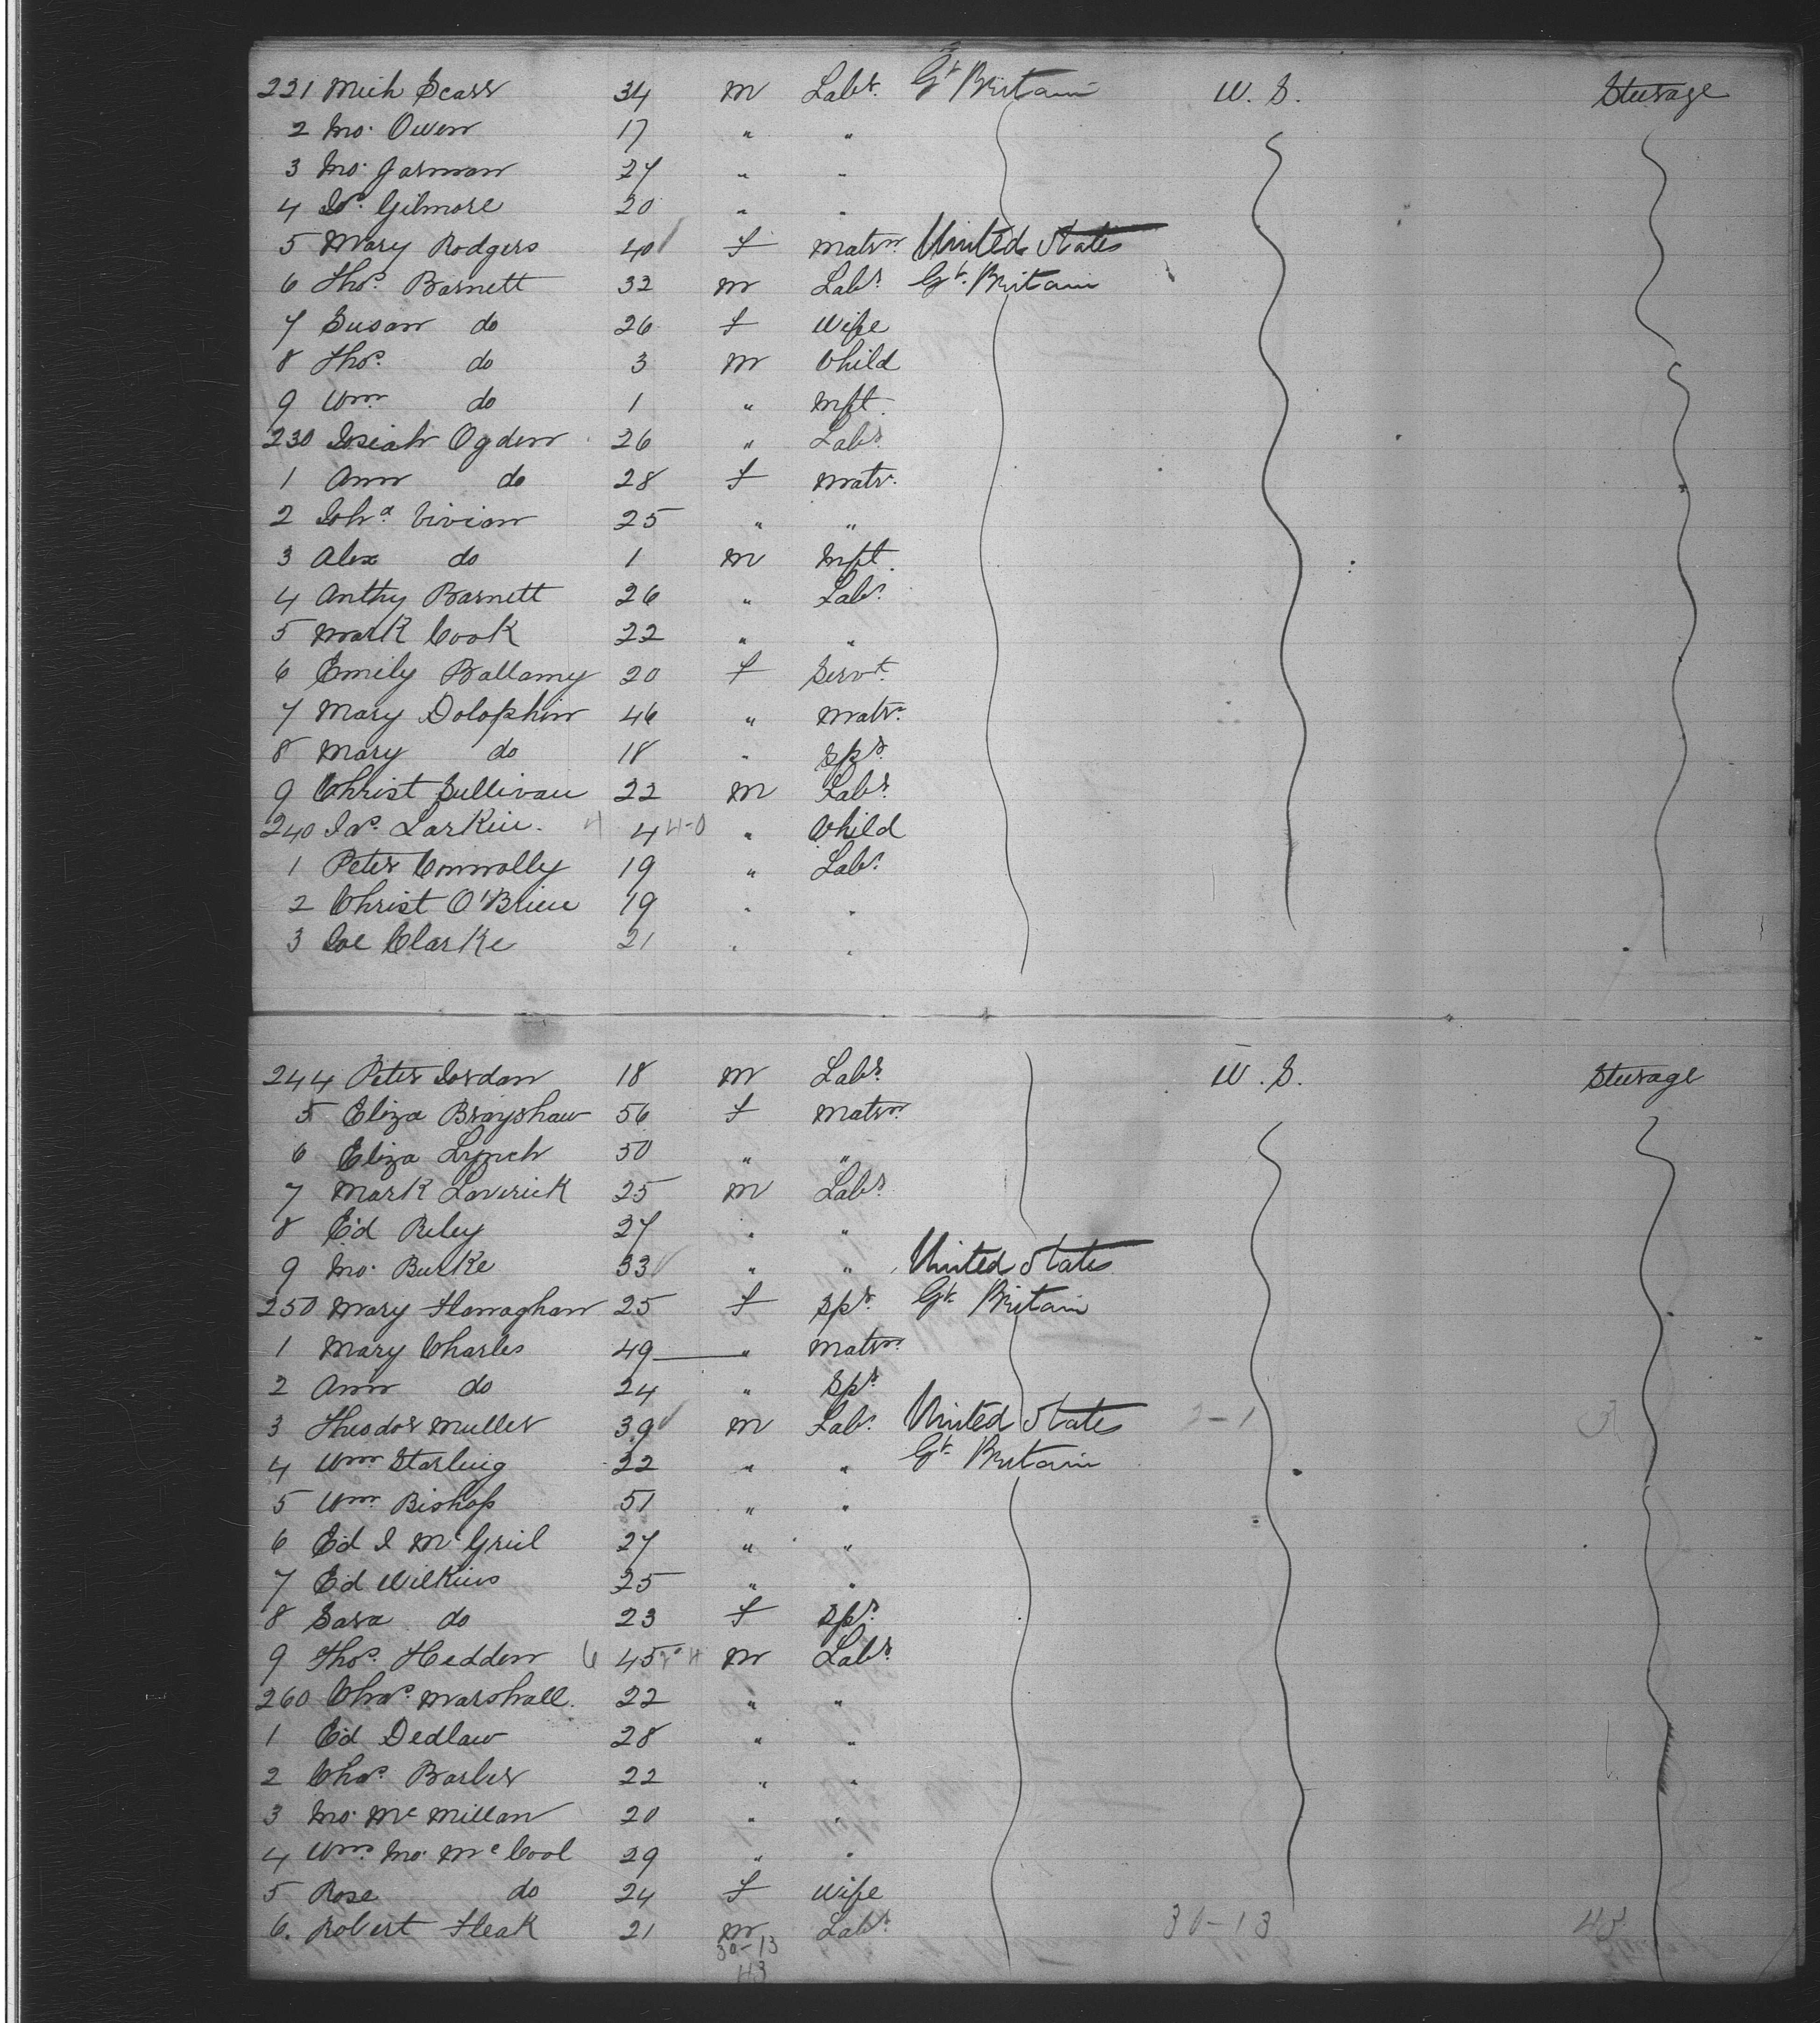 221 Mich Scarr 34 m Labr. Gt Britain U. S. Steerage
2 Jno. Owen 17 " "
3 Jno. Jarman 27 " "
4 Jos. Gilmore 20 " "
5 Mary Rodgers 40 f Matrn United States
6 Thos. Barnett 32 m Labr. Gt. Britain
7 Susan do 26 f Wife
8 Thos. do 3 m Child
9 Wm do 1 " Inft.
230 Josiah Ogden 26 " Labr
1 Ann do 28 f Matr.
2 Joha. Vivian 25 " "
3 Alex do 1 m Inft.
4 Anthy Barnett 26 " Labr.
5 Mark Cook 22 " "
6 Emily Ballamy 20 f Servt.
7 Mary Dolophin 46 " Matr.
8 Mary do 18 " Spr.
9 Christ Sullivan 22 m Labr.
240 Jas. Larkin. 4 " Child
1 Peter Connolly 19 " Labr.
2 Christ O'Brien 19 " "
3 Joe Clarke 21 " "
244 Peter Jordan 18 m Labr. U. S. Steerage
5 Eliza Brayshaw 56 f Matrn.
6 Eliza Lynch 50 " "
7 Mark Laverick 25 m Labr.
8 Ed Riley 27 " "
9 Jno. Burke 33 " " United States
250 Mary Flanaghan 25 f Spr. Gt. Britain
1 Mary Charles 49 " Matrn.
2 Ann do 24 " Spr.
3 Theodor Muller 39 m Labr. United States
4 Wm Starling 22 " " Gt. Britain
5 Wm Bishop 51 " "
6 Ed J McGriel 27 " "
7 Ed Wilkins 25 " "
8 Sara do 23 f Spr.
9 Thos. Hedden 45 m Labr.
260 Chas. Marshall. 22 " "
1 Ed Dedlaw 28 " "
2 Chas. Barber 22 " "
3 Jno. McMillan 20 " "
4 Wm. Jno. McCool 29 " "
5 Rose do 24 f Wife
6. Robert Fleak 21 m Labr. 30-13
30-13
43